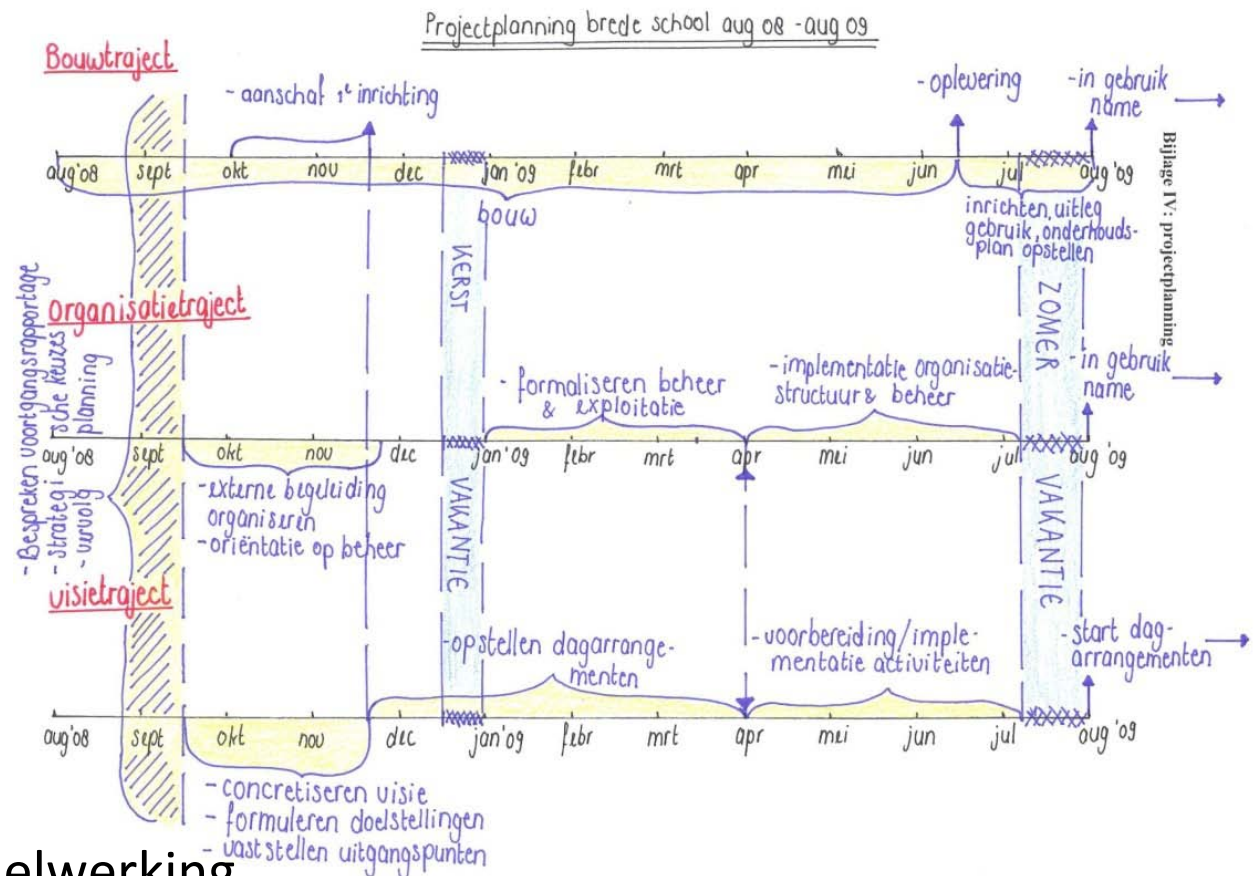 Projectplanning brede school aug 08 - aug 09
Bouwtraject
- aanschaf 1e inrichting
- oplevering
- in gebruik
name
aug'08 sept okt nov dec jan '09 febr mrt apr mei jun jul aug '09
bouw
inrichten, uitleg
gebruik, onderhouds-
plan opstellen
Bijlage IV: projectplanning
KERST
VAKANTIE
ZOMER
VAKANTIE
- Bespreken voortgangsrapportage
- strategische keuzes
- vervolg planning
organisatietraject
- formaliseren beheer
& exploitatie
- implementatie organisatie-
structuur & beheer
- in gebruik
name
aug '08 sept okt nov dec jan '09 febr mrt apr mei jun jul aug '09
- externe begeleiding
organiseren
- oriëntatie op beheer
visietraject
- opstellen dagarrange-
menten
- voorbereiding/imple-
mentatie activiteiten
- start dag-
arrangementen
aug'08 sept okt nov dec jan'09 febr mrt apr mei jun jul aug '09
- concretiseren visie
- formuleren doelstellingen
- vaststellen uitgangspunten
elwerking